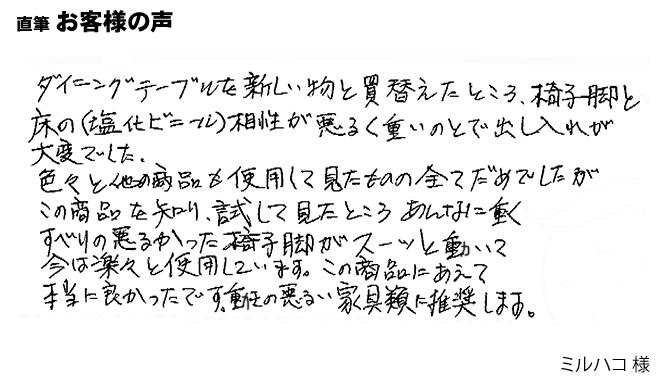 直筆 お客様の声
ダイニングテーブルを新しい物と買替えたところ、椅子脚と
床の(塩化ビニール)相性が悪るく重いのとで出し入れが
大変でした。
色々と他の商品も使用して見たものの全てだめでしたが
この商品を知り、試して見たところあんなに重く
すべりの悪るかった椅子脚がスーッと動いて
今は楽々と使用しています。この商品にあえて
本当に良かったです。重くての悪るい家具類に推奨します。
ミルハコ 様